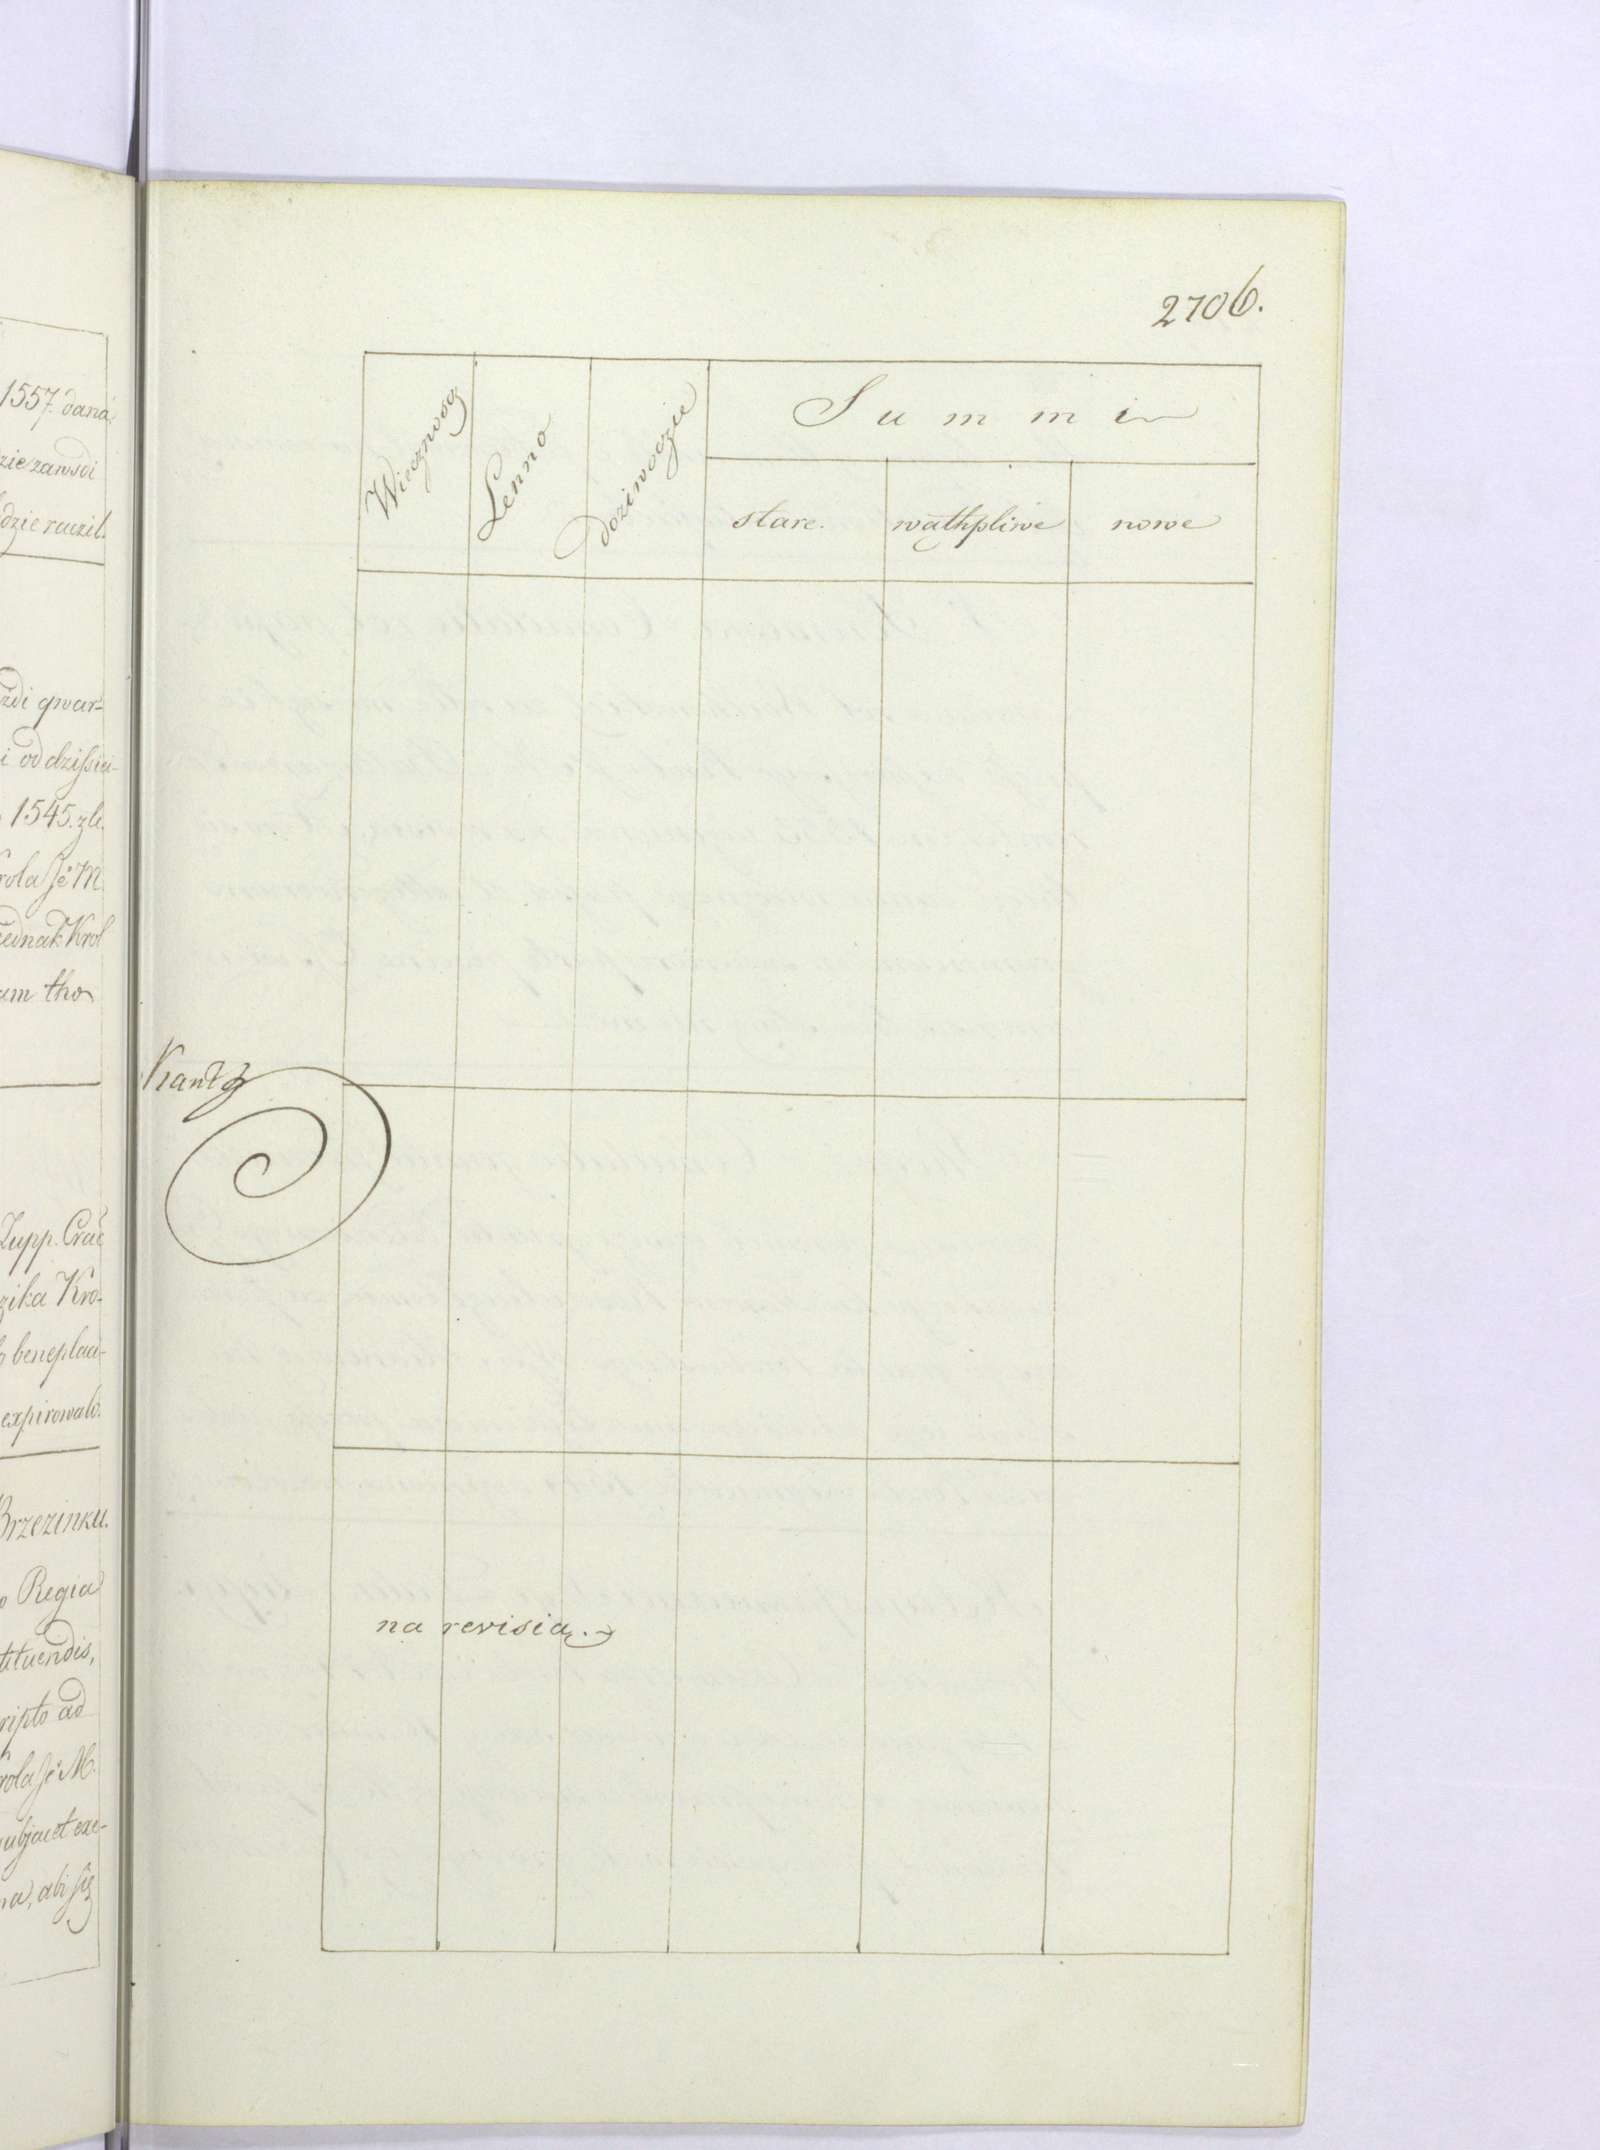 1557. daná
zie zawsdi
dzie raczil.
żdi gwar-
i od dzissiei-
1545. zle.
rola Je M.
ednak Krol
am tho
Zupp. Crac
zika Kro-
beneplaci-
expirowalo.
Brzezinku.
o Regia
tituendis,
ripto ad
rola Je M.
subjacet exe-
na, abi się
2706.
Wiecznosc
Lenno
doziwocie
Summi
stare.
wąthpliwe
nowe
na revisią.